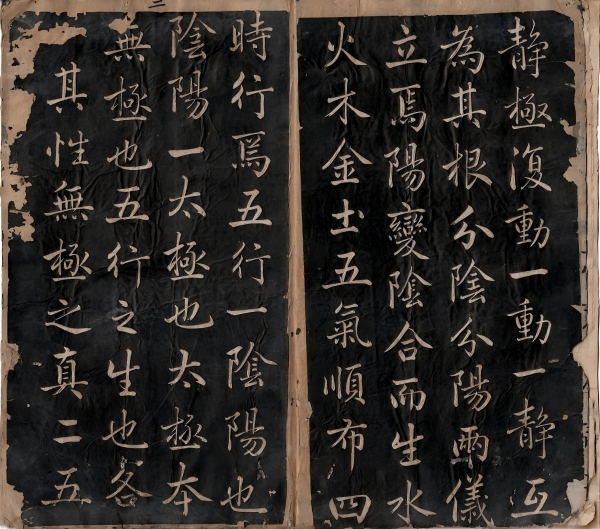 静極復動一動一静互
為其根分陰分陽兩儀
立焉陽變陰合而生水
火木金土五氣順布四
時行焉五行一陰陽也
陰陽一太極也太極本
無極也五行之生也各
其性無極之真二五